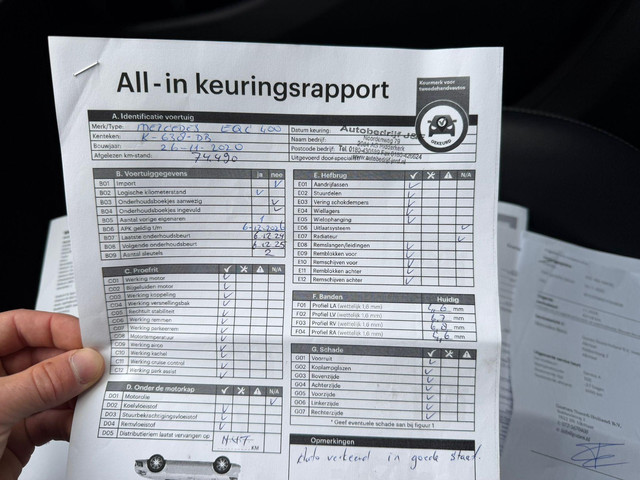 All-in keuringsrapport
Keurmerk voor tweedehandsautos
GEKEURD
A. Identificatie voertuig
Merk/Type: Mercedes EQC 400
Kenteken: K-638-DR
Bouwjaar: 26-11-2020
Afgelezen km-stand: 74.490
Datum keuring:
Naam bedrijf:
Postcode bedrijf:
Uitgevoerd door specialist:
Autobedrijf
B. Voertuiggegevens ja nee
B01 Import
B02 Logische kilometerstand
B03 Onderhoudsboekjes aanwezig
B04 Onderhoudsboekjes ingevuld
B05 Aantal vorige eigenaren 1
B06 APK geldig t/m
B07 Laatste onderhoudsbeurt
B08 Volgende onderhoudsbeurt
B09 Aantal sleutels 2
C. Proefrit N/A
C01 Werking motor
C02 Bijgeluiden motor
C03 Werking koppeling
C04 Werking versnellingsbak
C05 Rechtuit stabiliteit
C06 Werking remmen
C07 Werking parkeerrem
C08 Motortemperatuur
C09 Werking airco
C10 Werking kachel
C11 Werking cruise control
C12 Werking park assist
D. Onder de motorkap N/A
D01 Motorolie
D02 Koelvloeistof
D03 Stuurbekrachtigingsvloeistof
D04 Remvloeistof
D05 Distributieriem laatst vervangen op
KM
E. Hefbrug N/A
E01 Aandrijfassen
E02 Stuurdelen
E03 Vering schokdempers
E04 Wiellagers
E05 Wielophanging
E06 Uitlaatsysteem
E07 Radiateur
E08 Remslangen/leidingen
E09 Remblokken voor
E10 Remschijven voor
E11 Remblokken achter
E12 Remschijven achter
F. Banden Huidig
F01 Profiel LA (wettelijk 1,6 mm) mm
F02 Profiel LV (wettelijk 1,6 mm) mm
F03 Profiel RV (wettelijk 1,6 mm) mm
F04 Profiel RA (wettelijk 1,6 mm) 4,6 mm
G. Schade N/A
G01 Voorruit
G02 Koplampglazen
G03 Bovenzijde
G04 Achterzijde
G05 Voorzijde
G06 Linkerzijde
G07 Rechterzijde
* Geef eventuele schade aan bij figuur 1
Opmerkingen
Auto verkeerd in goede staat.